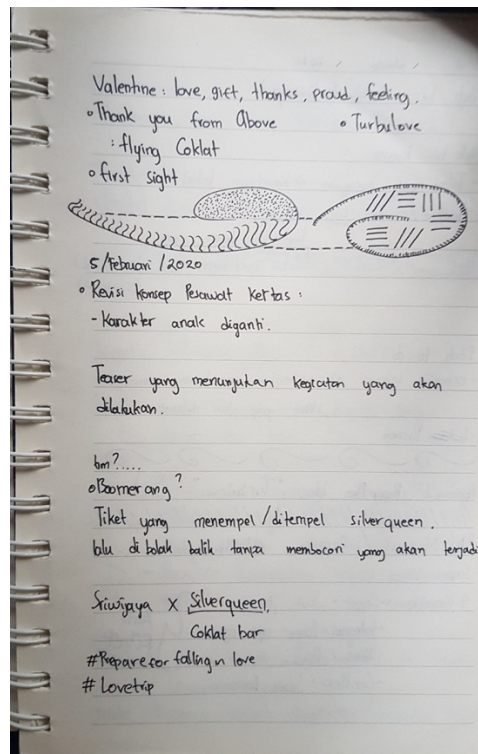 Valentine : love, gift, thanks, proud, feeling.
• Thank you from Above • Turbulove
: flying Coklat
• first sight
5/Februari/2020
• Revisi konsep Pesawat Kertas :
- Karakter anak diganti.
Teaser yang menunjukan kegiatan yang akan
dilakukan.
bm?.....
• Boomerang?
Tiket yang menempel/ditempel silverqueen.
lalu di bolak balik tanpa membocori yang akan terjadi
Sriwijaya x Silverqueen.
Coklat bar
#Prepare for falling n love
# Lovetrip